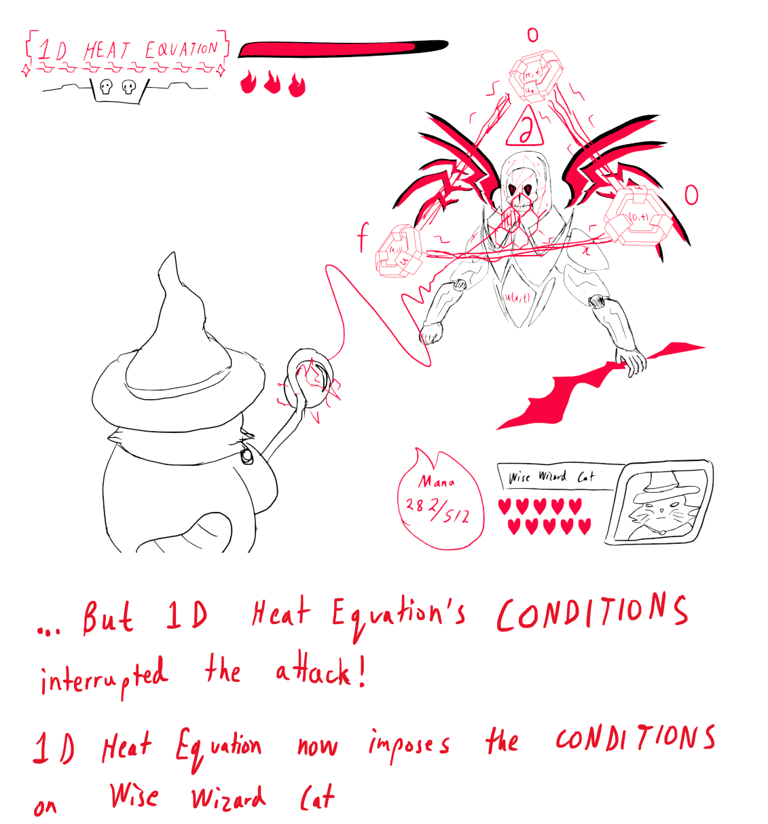 1D HEAT EQUATION
0
∂
0
(0,t)
f
x
u(x,t)
Mana
282/512
Wise Wizard Cat
... But 1D Heat Equation's CONDITIONS
interrupted the attack!
1D Heat Equation now imposes the CONDITIONS
on Wise Wizard Cat